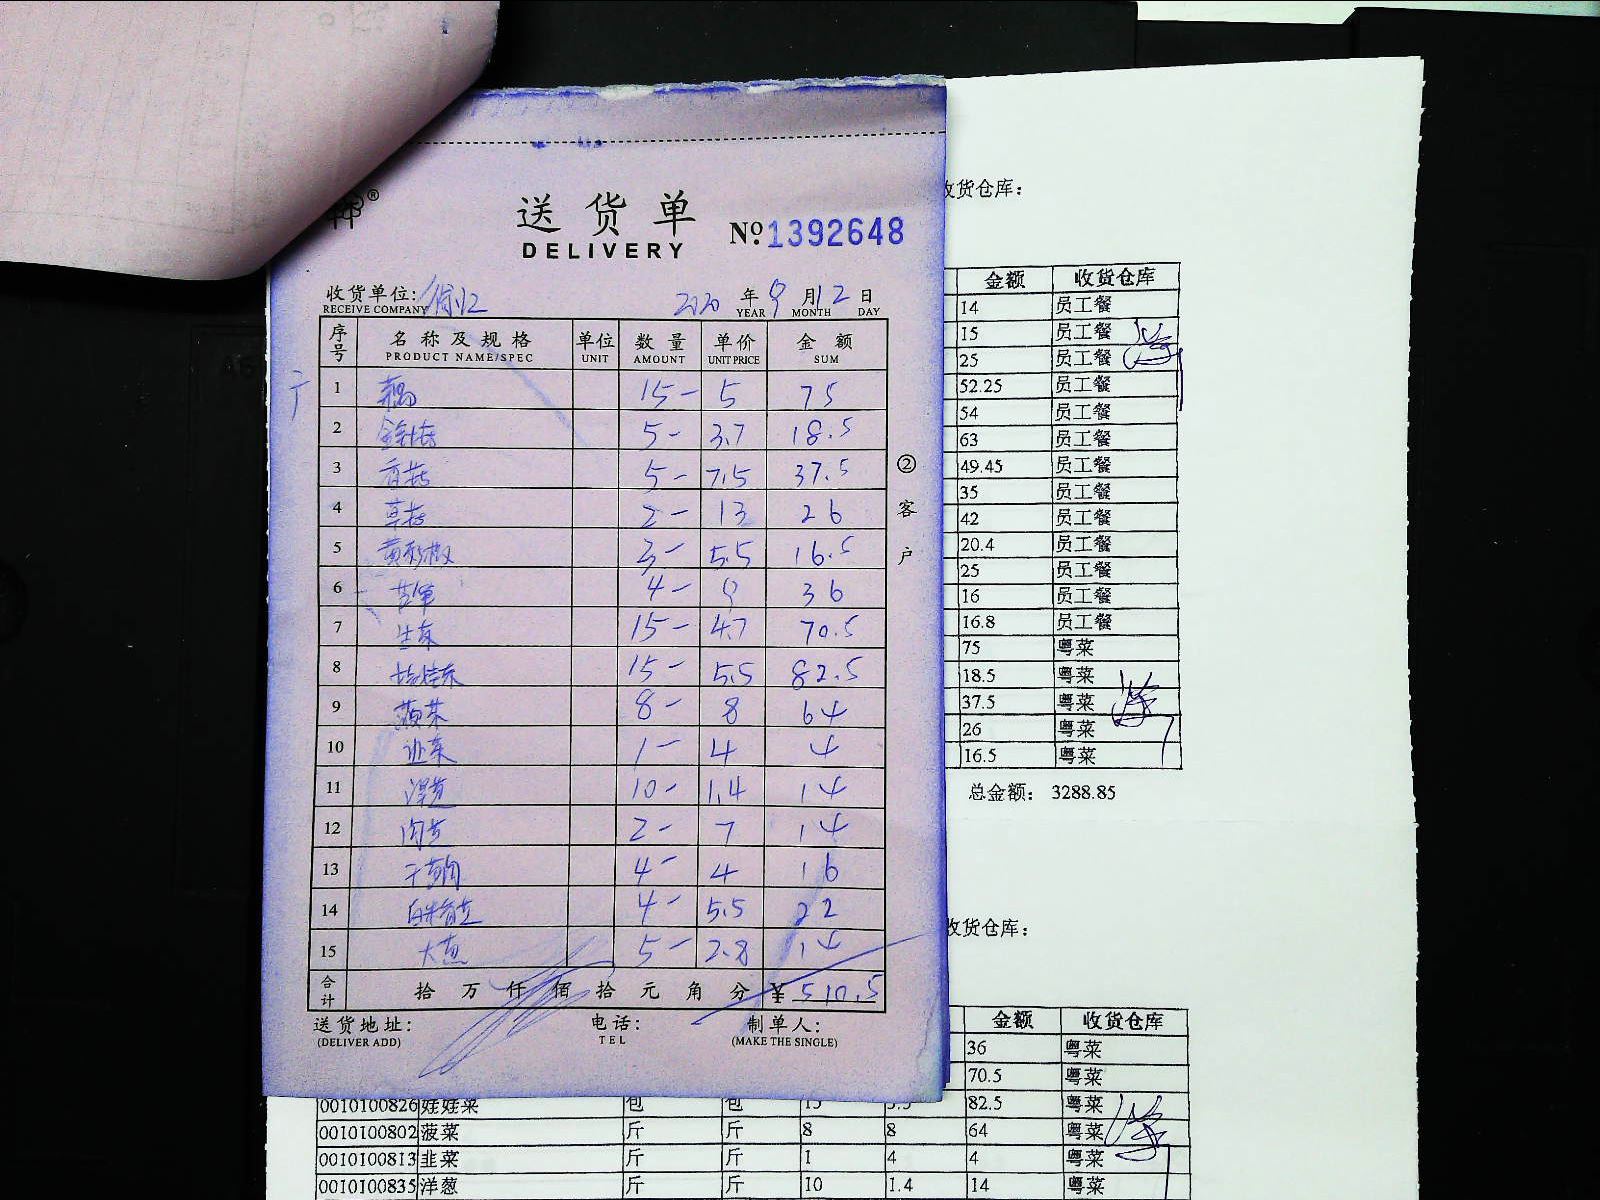 送货单
DELIVERY
№ 1392648
收货单位:
RECEIVE COMPANY
2020 年 9 月 12 日
YEAR MONTH DAY
序号 名称及规格 单位 数量 单价 金额
PRODUCT NAME/SPEC UNIT AMOUNT UNIT PRICE SUM
1 藕 15- 5 75
2 金针菇 5- 3.7 18.5
3 香菇 5- 7.5 37.5
4 草菇 2- 13 26
5 黄彩椒 3- 5.5 16.5
6 4- 9 36
7 生菜 15- 4.7 70.5
8 娃娃菜 15- 5.5 82.5
9 菠菜 8- 8 64
10 韭菜 1- 4 4
11 洋葱 10- 1.4 14
12 2- 7 14
13 4- 4 16
14 4- 5.5 22
15 大葱 5- 2.8 14
合计 拾 万 仟 佰 拾 元 角 分 ¥ 510.5
送货地址: 电话: 制单人:
(DELIVER ADD) TEL (MAKE THE SINGLE)
②客户
收货仓库:
金额 收货仓库
14 员工餐
15 员工餐
25 员工餐
52.25 员工餐
54 员工餐
63 员工餐
49.45 员工餐
35 员工餐
42 员工餐
20.4 员工餐
25 员工餐
16 员工餐
16.8 员工餐
75 粤菜
18.5 粤菜
37.5 粤菜
26 粤菜
16.5 粤菜
总金额: 3288.85
收货仓库:
金额 收货仓库
36 粤菜
70.5 粤菜
0010100826 娃娃菜 包 包 15 5.5 82.5 粤菜
0010100802 菠菜 斤 斤 8 8 64 粤菜
0010100813 韭菜 斤 斤 1 4 4 粤菜
0010100835 洋葱 斤 斤 10 1.4 14 粤菜